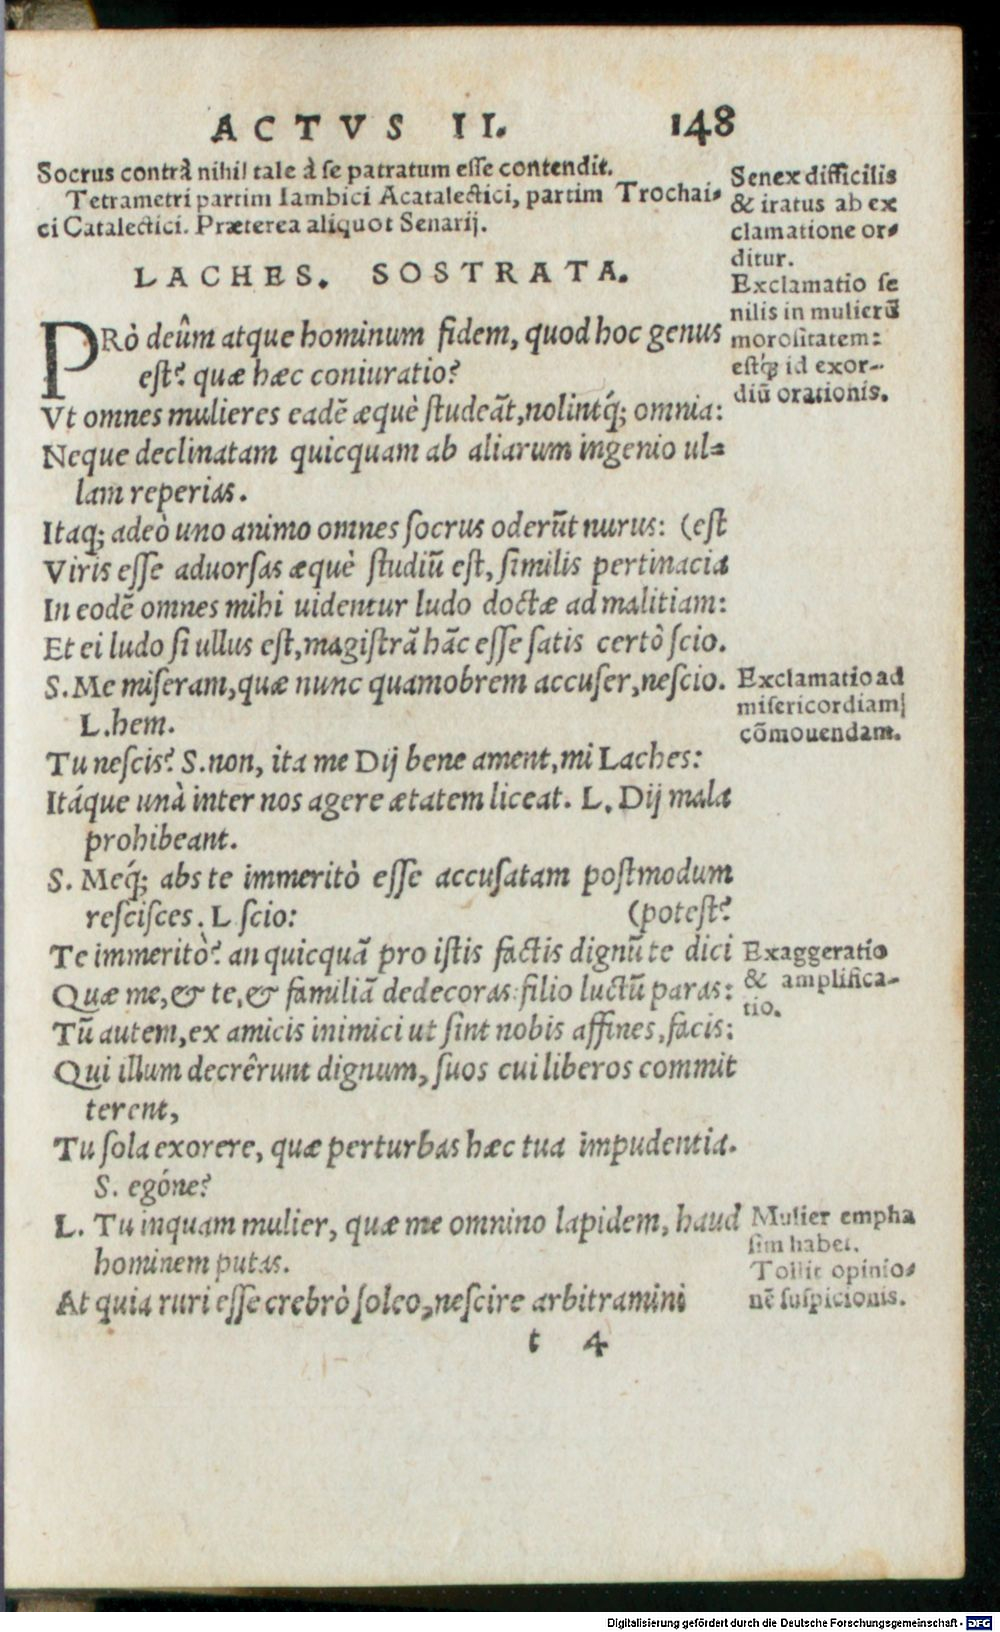 ACTVS II. 148
Socrus contrà nihil tale à se patratum esse contendit.
Tetrametri partim Iambici Acatalectici, partim Trochai-
ci Catalectici. Præterea aliquot Senarij.
LACHES. SOSTRATA.
PRò deûm atque hominum fidem, quod hoc genus
est? quæ hæc coniuratio?
Vt omnes mulieres eadē æquè studeāt, nolintq́; omnia:
Neque declinatam quicquam ab aliarum ingenio ul-
lam reperias.
Itaq; adeò uno animo omnes socrus oderūt nurus: (est
Viris esse aduorsas æquè studiū est, similis pertinacia
In eodē omnes mihi uidentur ludo doctæ ad malitiam:
Et ei ludo si ullus est, magistrā hāc esse satis certò scio.
S. Me miseram, quæ nunc quamobrem accuser, nescio.
L. hem.
Tu nescis? S. non, ita me Dij bene ament, mi Laches:
Itáque unà inter nos agere ætatem liceat. L. Dij mala
prohibeant.
S. Meq́; abs te immeritò esse accusatam postmodum
rescisces. L scio: (potest?
Te immeritò? an quicquā pro istis factis dignū te dici
Quæ me, & te, & familiā dedecoras: filio luctū paras:
Tū autem, ex amicis inimici ut sint nobis affines, facis:
Qui illum decrêrunt dignum, suos cui liberos commit
terent,
Tu sola exorere, quæ perturbas hæc tua impudentia.
S. egóne?
L. Tu inquam mulier, quæ me omnino lapidem, haud
hominem putas.
At quia ruri esse crebrò soleo, nescire arbitramini
t 4
Senex difficilis
& iratus ab ex
clamatione or-
ditur.
Exclamatio se
nilis in mulierū
morositatem:
estq́; id exor-
diū orationis.
Exclamatio ad
misericordiam
cōmouendam.
Exaggeratio
& amplifica-
tio.
Mulier empha
sim habet.
Tollit opinio-
nē suspicionis.
Digitalisierung gefördert durch die Deutsche Forschungsgemeinschaft - DFG